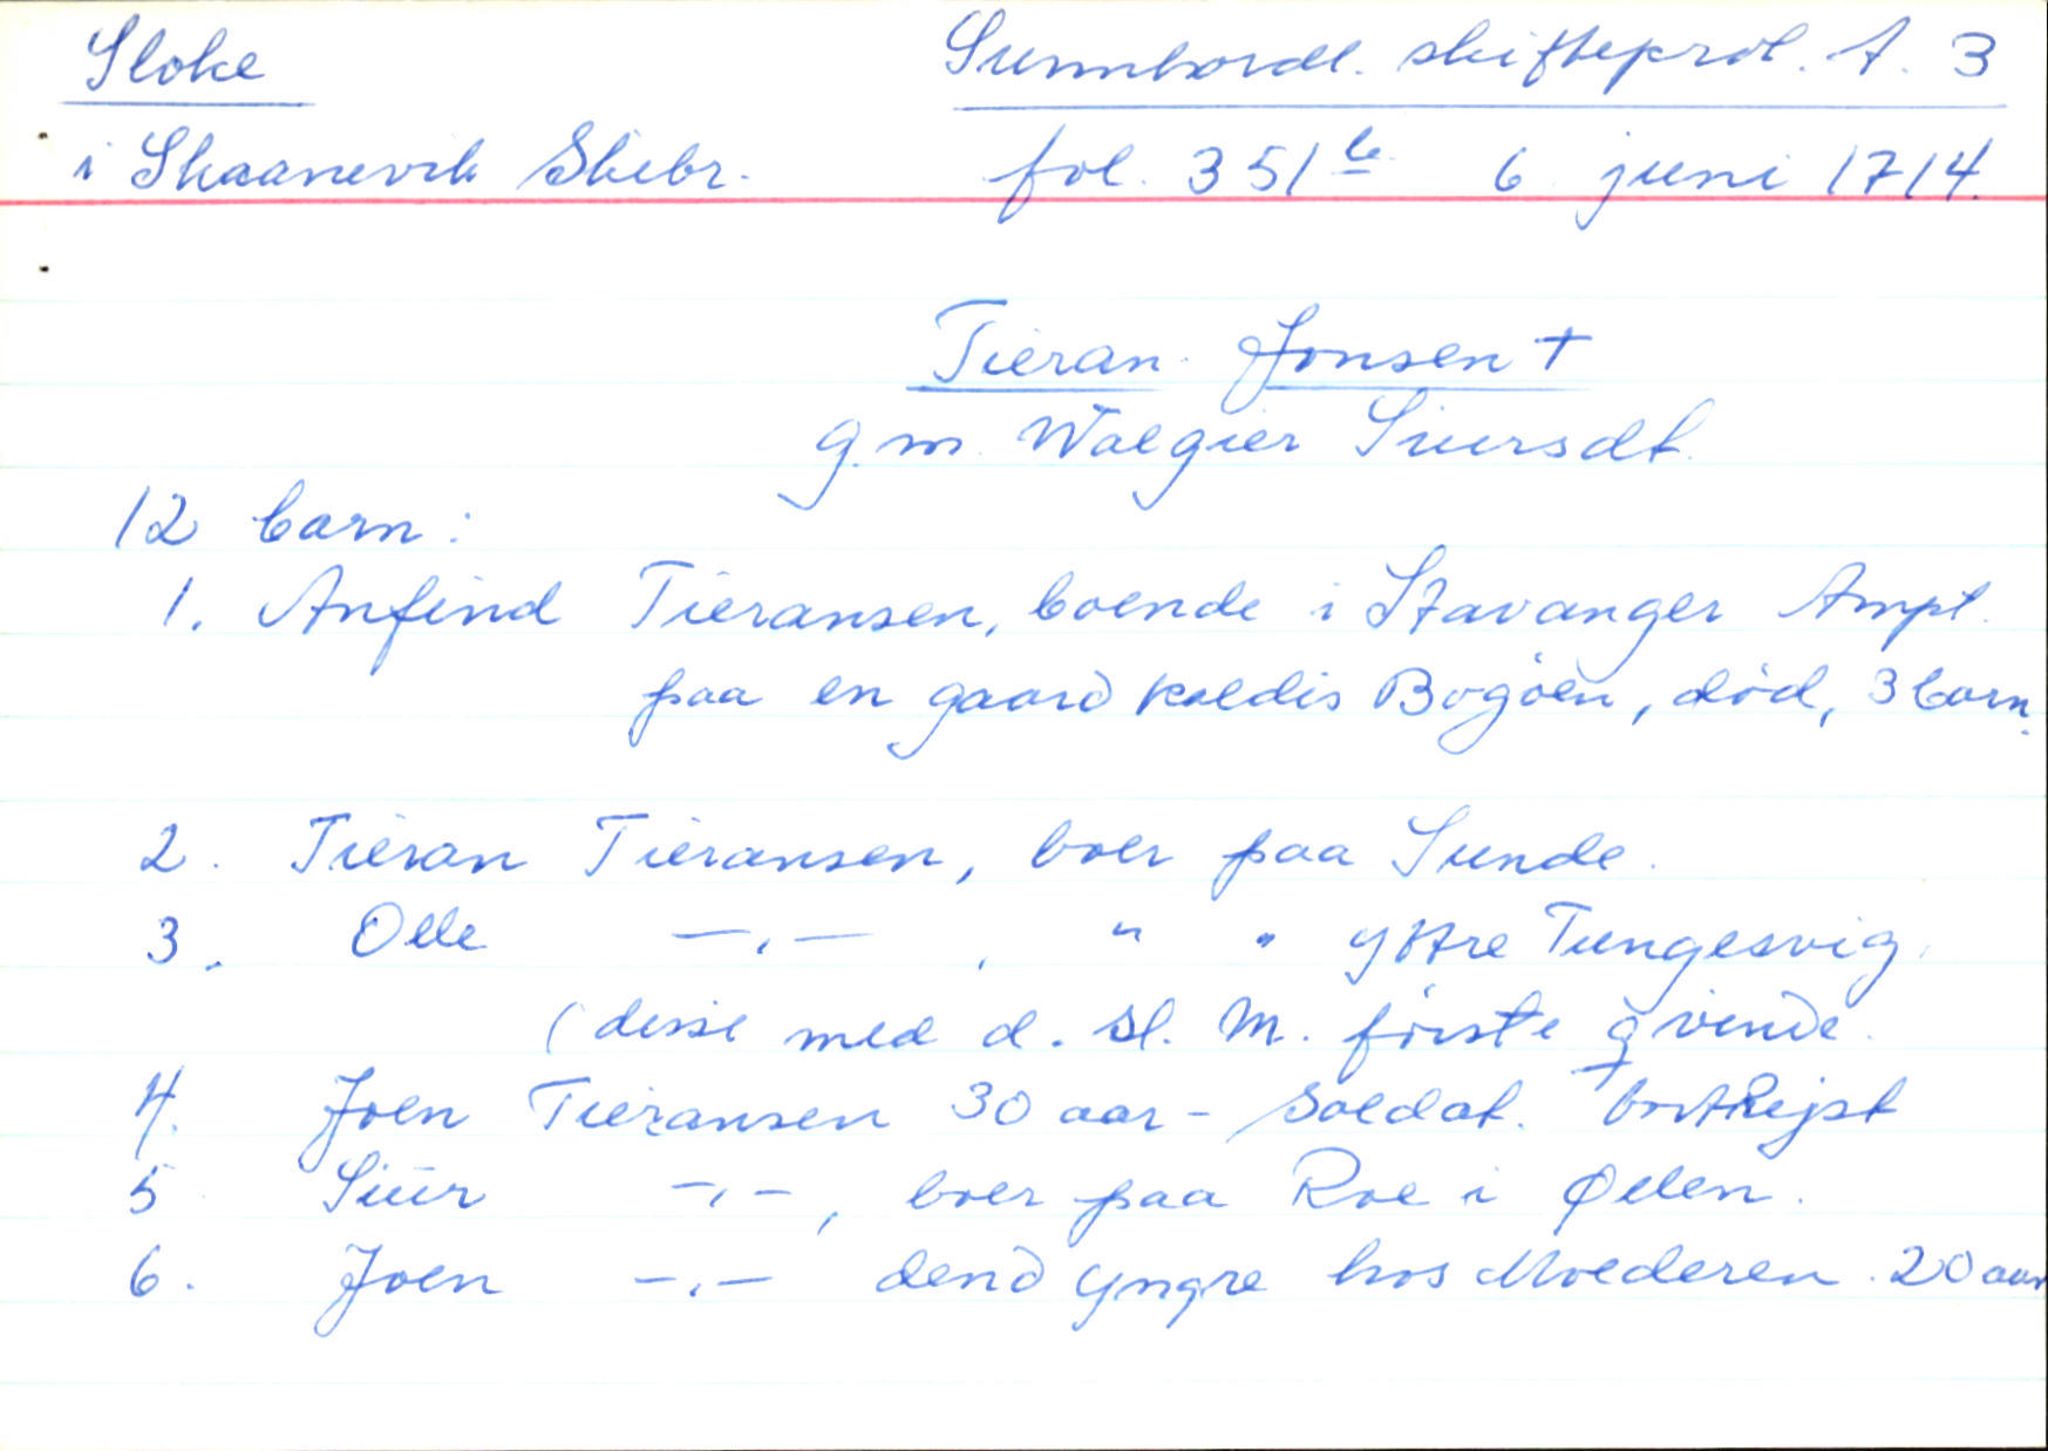 Sloke Sunnhordl. skifteprot. A. 3
i Skaanevik Skibr. fol. 351 b 6 juni 1714.
Tieran Jonsen +
g. m. Walgier Siursdt.
12 barn:
1. Anfind Tieransen, boende i Stavanger Ampt.
paa en gaard kaldis Bogöen, död, 3 barn.
2. Tieran Tieransen, boer paa Sunde.
3. Olle —.— , " " yttre Tungesvig.
(disse med d. sl. M. förste qvinde.
4. Joen Tieransen 30 aar - Soldat. bortRejst
5 Siur —.—, boer paa Roe i Ølen.
6. Joen —.— dend yngre hos Moederen. 20 aar